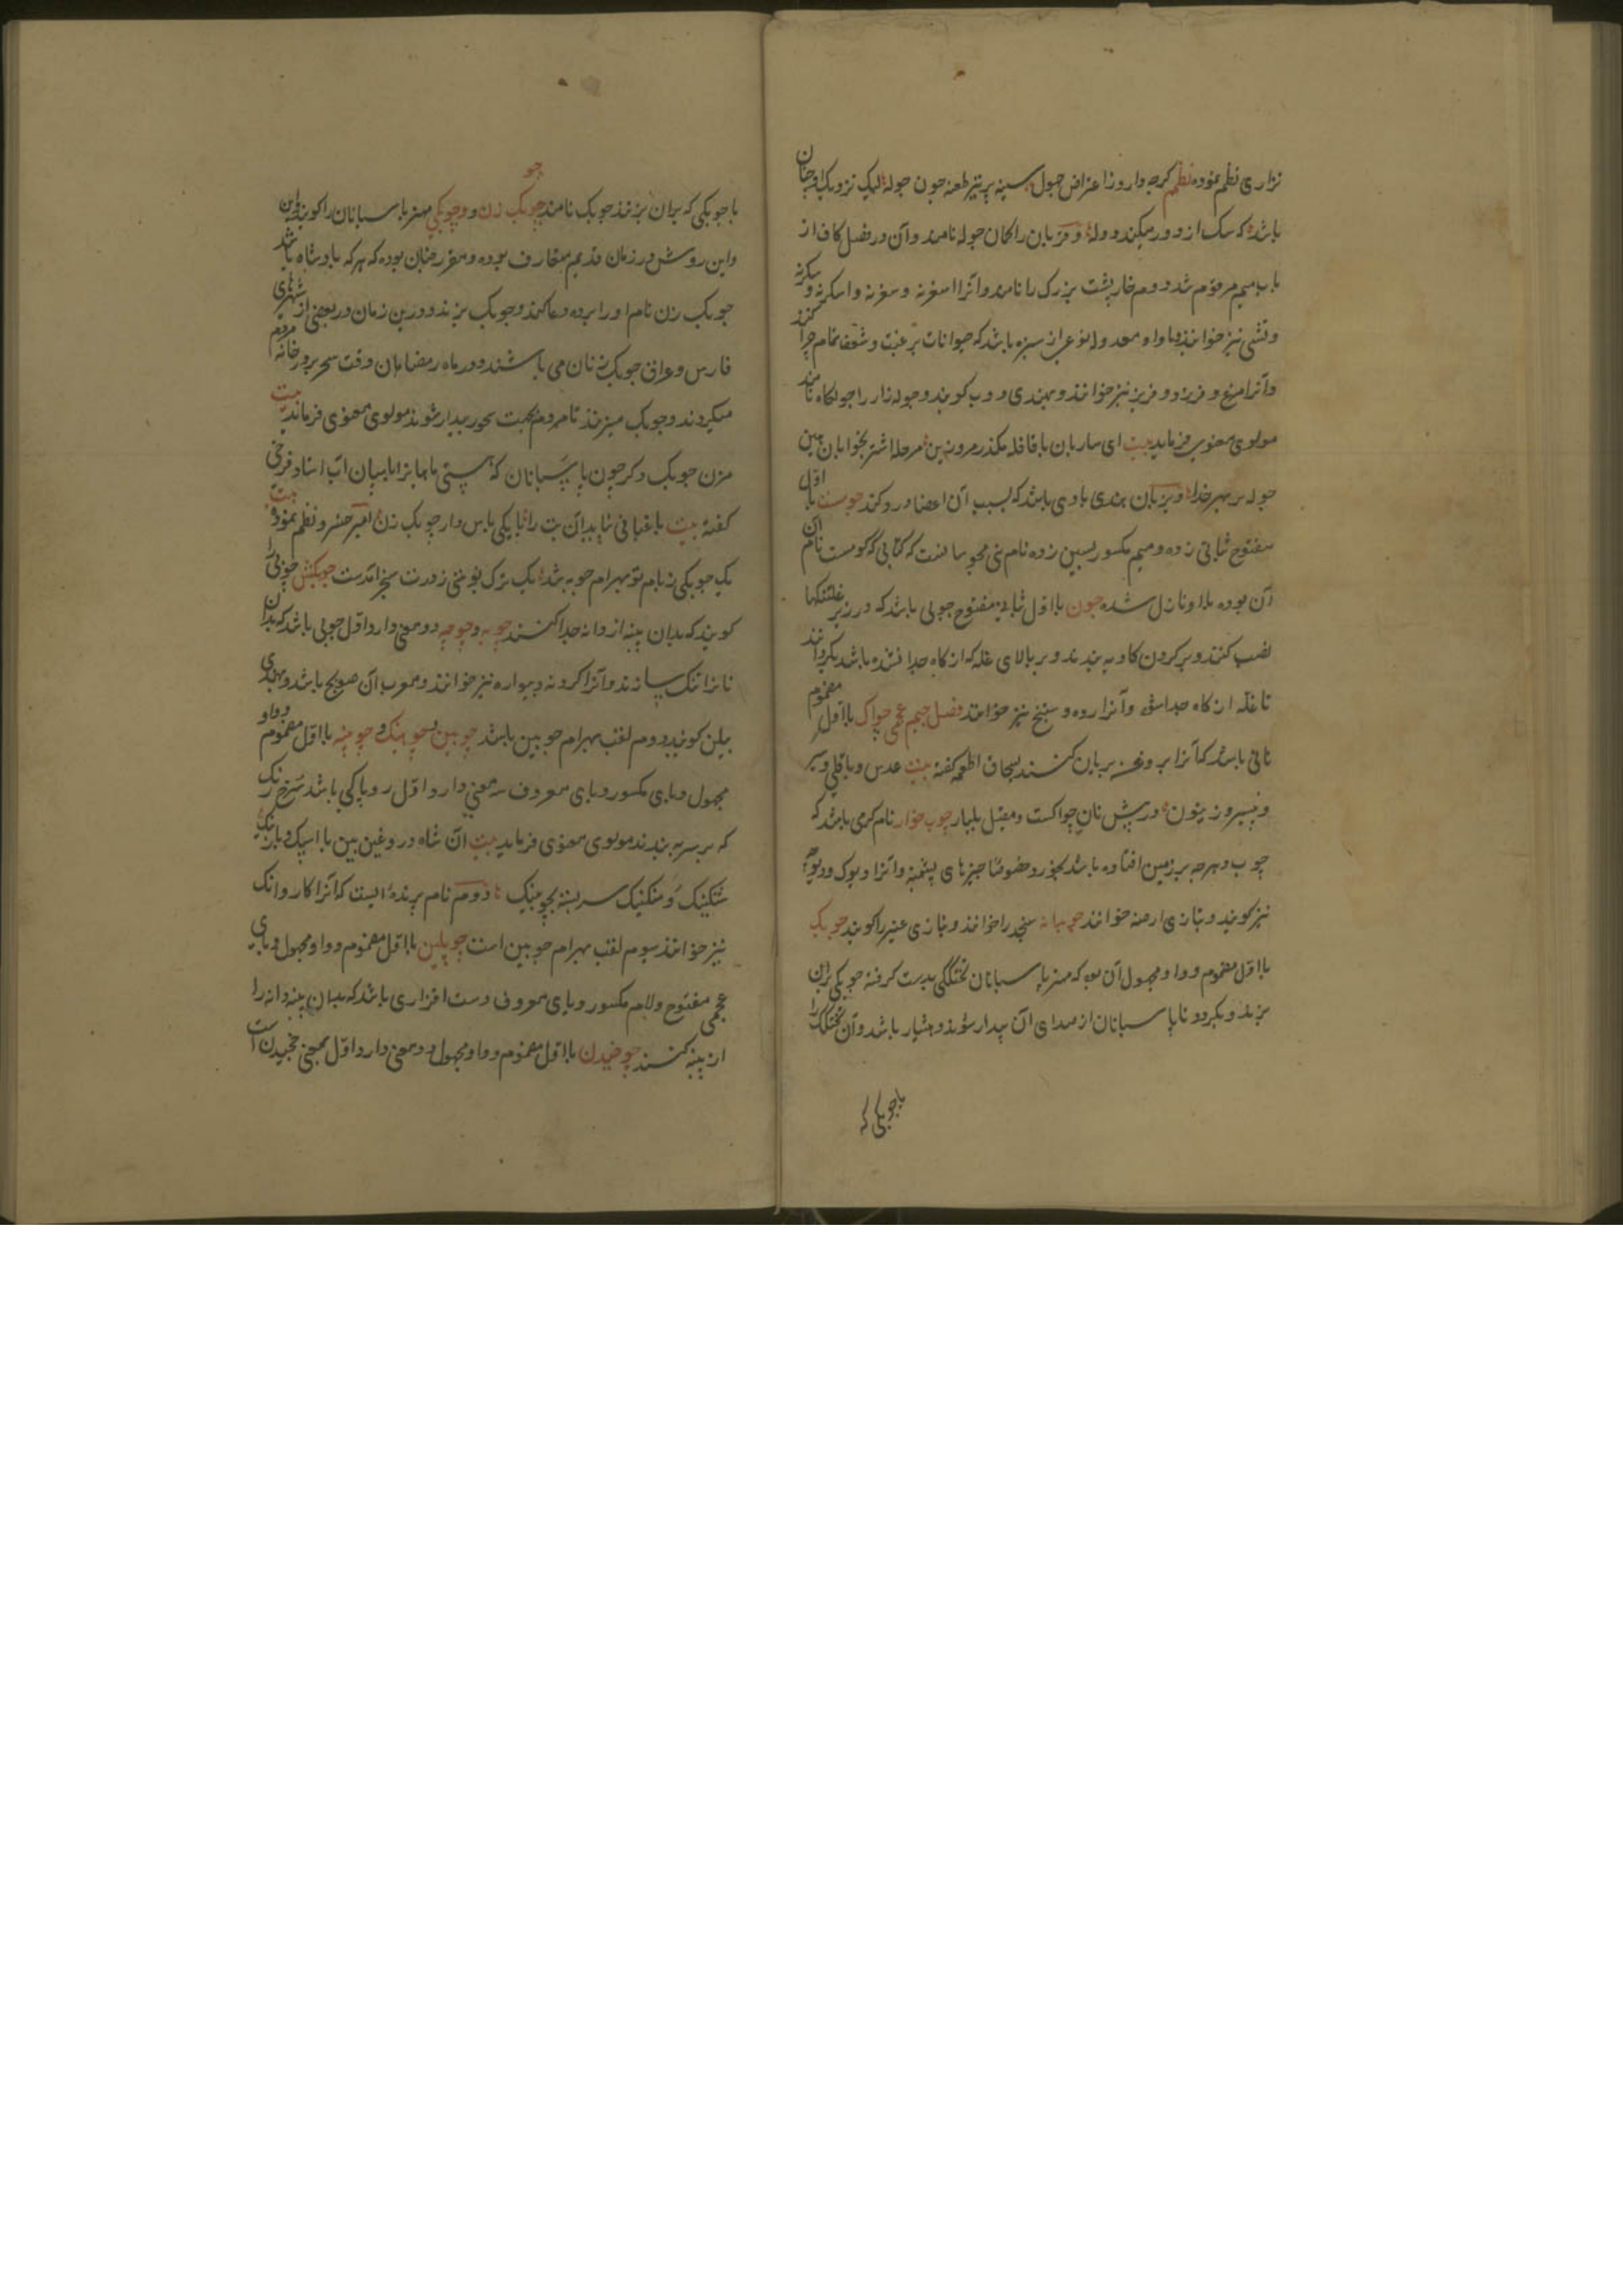 نزاری نظم نموده نظم کرچه دارد ز اعتراض جبول سینه پر تیر طعنه چون جوله لیک نزدیک او چنان
باشد که سک از دور میکند دوله و قربان را کمان جوله نامند و آن در فصل کاف از
باب میم مرقوم شد دوم خارپشت بزرک را نامند و آنرا اسغرنه و سغرنه و اسکرنه و سکرنه
و تشی نیز خوانند و با واو معدوله نوعی از سبزه باشد که حیوانات برغبت و شعف تمام چرا کنند
و آنرا مرغ و فریز و فریز نیز خوانند و بهندی دوب کویند و جوله زار را جولکاه نامند
مولوی معنوی فرماید بیت ای ساربان با قافله مکذر مرو زین مرحله اشتر بخوابان هین
جوله بهر خدا و بزبان هندی بادی باشد که بسبب آن اعضا درد کند جوست با اول
مفتوح ثانی زده و میم مکسور بسین زده نام نبی مجوسانست که کتابی که کومست نام
آن بوده باو نازل شده جون با اول ثانی مفتوح چوبی باشد که در زیر غلتکها
نصب کنند و بر کردن کاو به بندند و بر بالای غله که از کاه جدا نشده باشد بکردانند
تا غله از کاه جدا شود و آنرا روه و سنخ نیز خوانند فصل جیم عجمی چواک با اول مضموم
ثانی باشد که آنرا بروغن بریان کنند بسحاق اطعمه کفته بیت عدس و باقلی و سیر
و پنیر و زیتون در پیش نان چواکست و مقیل بلیار چوب خوار نام کرمی باشد که
چوب و هر چه بر زمین افتاده باشد بخورد خصوصا چیزهای پشمینه و آنرا دیوک و دیوچه
نیز کویند و بتازی ارضه خوانند چوبانه سنجد را خوانند و بتازی غبیرا کویند چوبک
با اول مضموم و واو مجهول آن بود که مهتر پاسبانان تختکی بدست کرفته چوبکی بران
بزند و بکردد تا پاسبانان از صدای آن بیدار شوند و هشیار باشد و آن تختک را
با چوبکی که
چو
با چوبکی که بران بزنند چوبک نامند چوبک زن و چوبکی مهتر پاسبانان را کویند
و این روش در زمان قدیم متعارف بوده و مقرر چنان بوده که هر که پادشاه باشد
چوبک زن نام او را برده دعا کند و چوبک بزند و درین زمان در بعضی از شهرهای
فارس و عراق چوبک زنان می باشند و در ماه رمضان وقت سحر بدر خانه مردم
میکردند و چوبک میزنند تا مردم بجهت سحور بیدار شوند مولوی معنوی فرماید بیت
مزن چوبک دکر چون پاسبانان که استاد فرخی
کفته بیت باغبانی نباید آن بت را نایکی پاس دار چوبک زن امیر خسرو نظم نموده بیت
یک چوبکی ز بام تو بهرام چوبه شد یک ترک چوبکش چوبی را
کویند که بدان پنبه از دانه جدا کنند چوبه و چوچه دو معنی دارد اول چوبی باشد که بدان
نانرا تنک سازند و آنرا کردنه و تیواره نیز خوانند و معرب آن صوبج باشد و بهندی
بیلن کویند دوم لقب بهرام چوبین باشد چوبین و چوبینک و چوبینه با اول مضموم و واو
مجهول و بای مکسور و یای معروف سه معنی دارد اول روپاکی باشد سرخ رنک
که بر سر به بندند مولوی معنوی فرماید بیت آن شاه دروغین بین با اسپک و با زینک
شنکینک و منکینک سر بسته بچوبینک دوم نام پرنده ایست که آنرا کاروانک
نیز خوانند سوم لقب بهرام چوبین است چوپلین با اول مضموم و واو مجهول و بای
عجمی مفتوح و لام مکسور و یای معروف دست افزاری باشد که بدان پنبه دانه را
از پنبه کنند چوخیدن با اول مضموم و واو مجهول دو معنی دارد اول بمعنی خیدن است